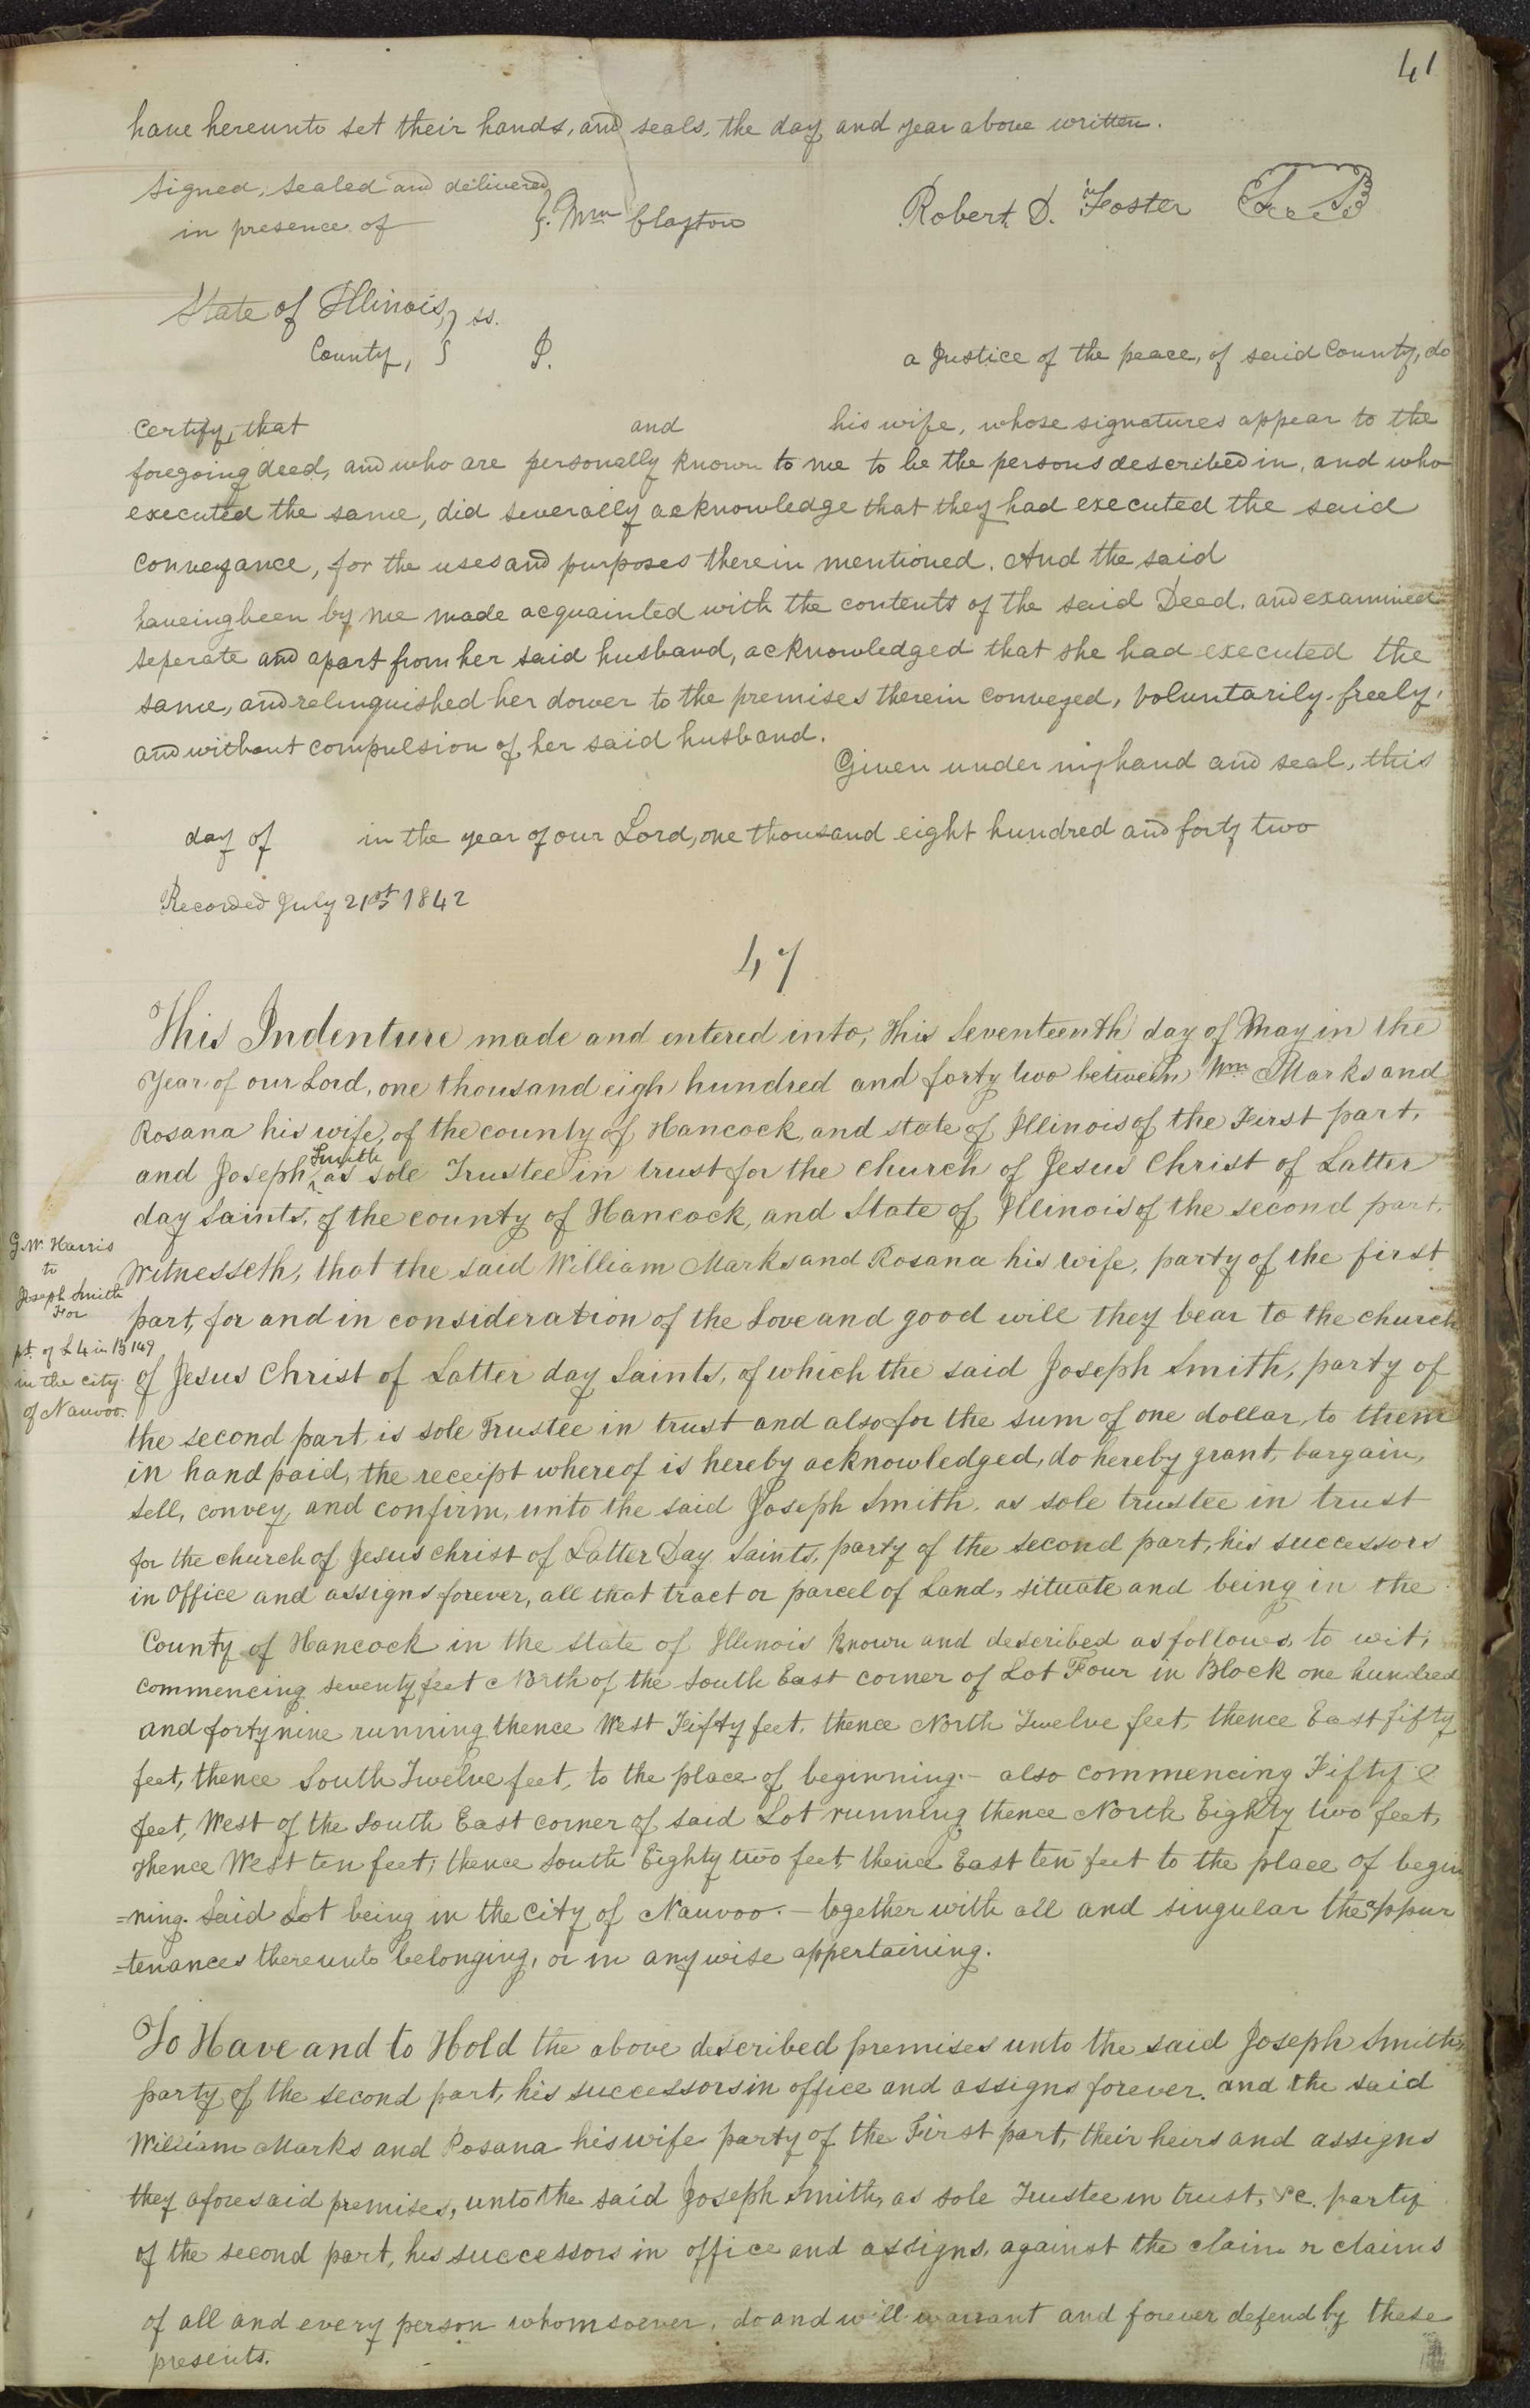 41
have hereunto set their hands, and seals, the day and year above written.
Signed, sealed and delivered
in presence of } Wm Clayton Robert D. Foster
State of Illinois, } ss.
County, } I. a Justice of the peace, of said County, do
certify, that and his wife, whose signatures appear to the
foregoing deed, and who are personally known to me to be the persons described in, and who
executed the same, did severally acknowledge that they had executed the said
conveyance, for the uses and purposes therein mentioned. And the said
haveing been by me made acquainted with the contents of the said Deed, and examined
seperate and apart from her said husband, acknowledged that she had executed the
same, and relinquished her dower to the premises therein conveyed, voluntarily, freely,
and without compulsion of her said husband.
Given under my hand and seal, this
day of in the year of our Lord, one thousand eight hundred and forty two
Recorded July 21st 1842
47
This Indenture made and entered into, this Seventeenth day of May in the
Year of our Lord, one thousand eigh hundred and forty two between Wm Marks and
Rosana his wife, of the county of Hancock, and state of Illinois of the First part,
and Joseph Smith as sole Trustee in trust for the church of Jesus Christ of Latter
day Saints, of the county of Hancock, and State of Illinois of the second part,
Witnesseth, that the said William Marks and Rosana his wife, party of the first
part, for and in consideration of the Love and good will they bear to the church
of Jesus Christ of Latter day Saints, of which the said Joseph Smith, party of
the second part, is sole Trustee in trust and also for the sum of one dollar, to them
in hand paid, the receipt whereof is hereby acknowledged, do hereby grant, bargain,
sell, convey, and confirm, unto the said Joseph Smith, as sole trustee in trust
for the church of Jesus christ of Latter Day Saints, party of the second part, his successors
in Office and assigns forever, all that tract or parcel of Land, situate and being in the
County of Hancock in the state of Illinois known and described as follows, to wit;
commencing seventy feet North of the South East corner of Lot Four in Block one hundred
and forty nine running thence West Fifty feet, thence North Twelve feet, thence East fifty
feet, thence South Twelve feet, to the place of beginning.- also commencing Fifty
feet, West of the South East corner of said Lot running thence North Eighty two feet,
thence West ten feet; thence South Eighty two feet, thence East ten feet to the place of begin
=ning. Said Lot being in the City of Nauvoo.- together with all and singular the appur
=tenances thereunto belonging, or in any wise appertaining.
G. W. Harris
to
Joseph Smith
For
pt. of L 4 in B 149
in the city
of Nauvoo.
To Have and to Hold the above described premises unto the said Joseph Smith,
party of the second part, his successors in office and assigns forever. and the said
William Marks and Rosana his wife party of the First part, their heirs and assigns
they aforesaid premises, unto the said Joseph Smith, as sole Trustee in trust, &c. party
of the second part, his successors in office and assigns, against the claim or claims
of all and every person whomsoever, do and will warrant and forever defend by these
presents.